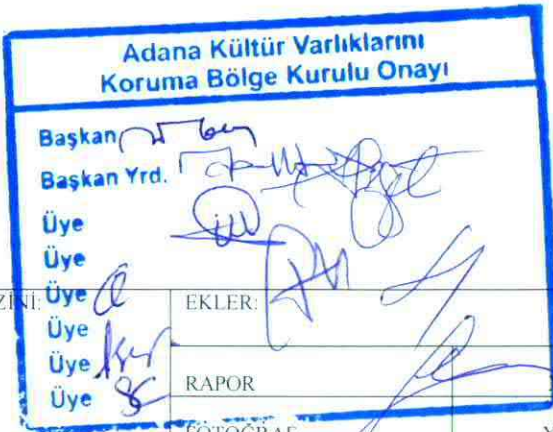 Adana Kültür Varlıklarını
Koruma Bölge Kurulu Onayı
Başkan
Başkan Yrd.
Üye
Üye
ZİNİ: Üye EKLER:
Üye
Üye RAPOR
Üye
FOTOĞRAF